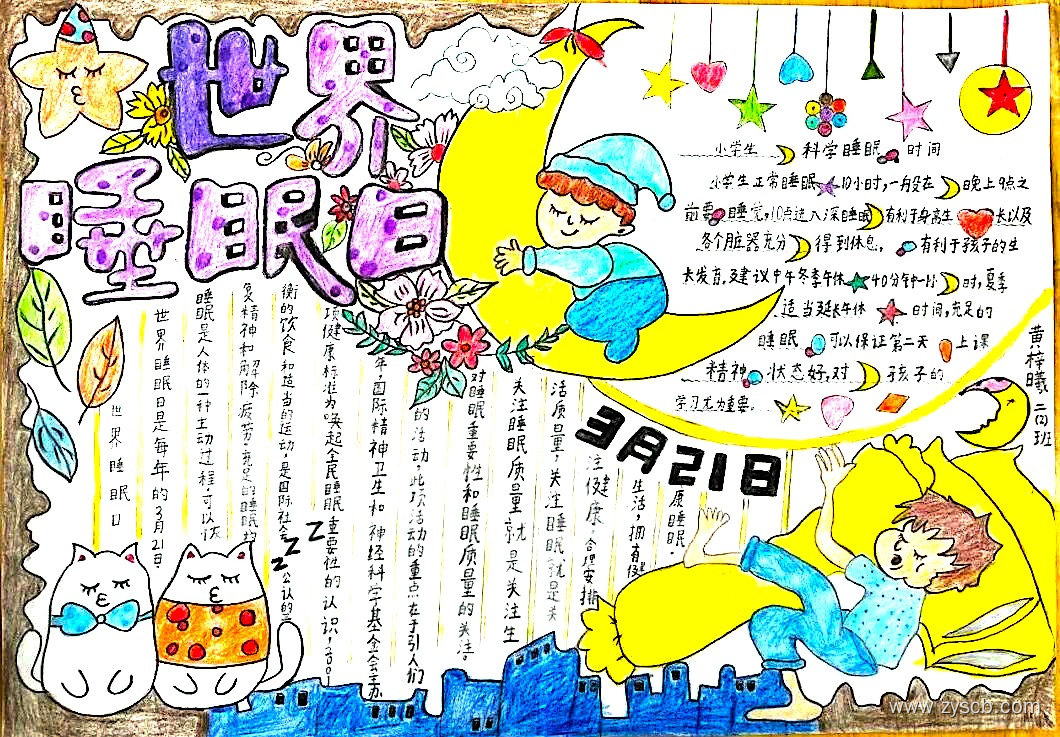 世界
睡眠日
小学生
科学睡眠时间
小学生正常睡眠10小时,一般在晚上9点之
前要睡觉,10点进入深睡眠有利于身高生长以及
各个脏器充分得到休息,有利于孩子的生
长发育,建议中午冬季午休40分钟一小时,夏季
适当延长午休时间,充足的
睡眠可以保证第二天上课
精神状态好,对孩子的
学习尤为重要。
黄梓曦
二(4)班
3月21日
世界睡眠日
世界睡眠日是每年的3月21日.
睡眠是人体的一种主动过程,可以恢
复精神和解除疲劳,充足的睡眠,均
衡的饮食和适当的运动,是国际社会公认的
项健康标准为唤起全民睡眠重要性的认识,200
年,国际精神卫生和神经科学基金会主办
的活动,此项活动的重点在于引人们
对睡眠重要性和睡眠质量的关注。
关注睡眠质量就是关注生
活质量,关注睡眠就是关
注健康,合理安排
生活,拥有健
康睡眠.
Z Z Z
www.zyscb.com